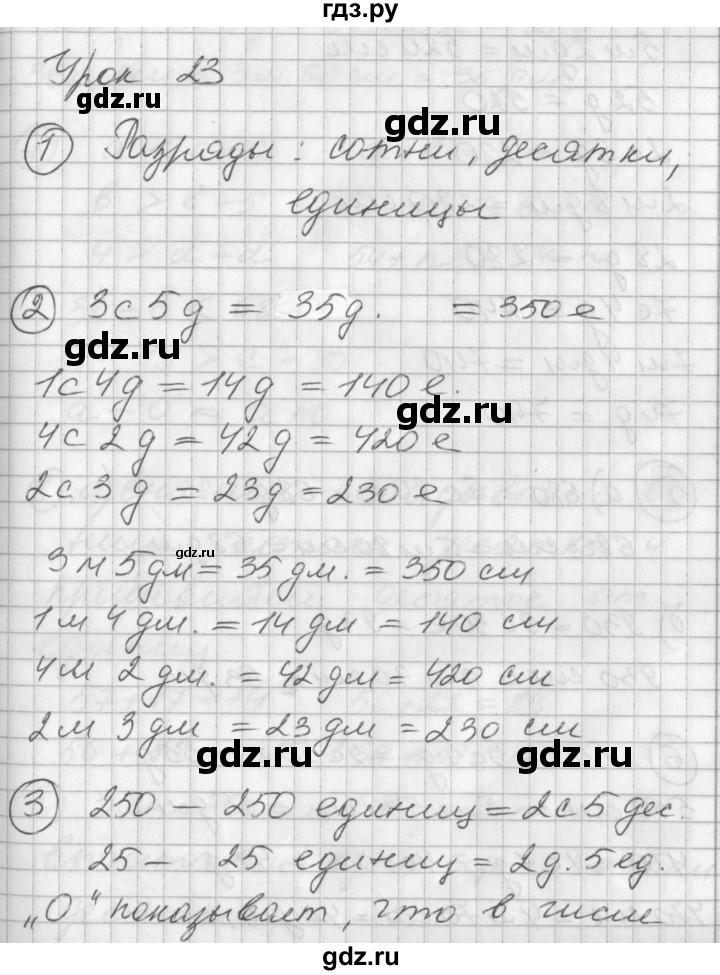 гдз.ру
Урок 23
gdz.ru
gdz.ru
① Разряды: сотни, десятки,
единицы
② 3с 5д = 35д. = 350е
gdz.ru
1с 4д = 14д = 140е.
gdz.ru
4с 2д = 42д = 420е
2с 3д = 23д = 230е
gdz.ru
3м 5дм = 35 дм. = 350 см
1м 4 дм. = 14 дм = 140 см
4м 2 дм. = 42 дм = 420 см
2м 3 дм = 23 дм = 230 см
gdz.ru
gdz.ru
③ 250 — 250 единиц = 2с 5 дес.
25 — 25 единиц = 2д. 5ед.
„0“ показывает, что в числе
gdz.ru
gdz.ru